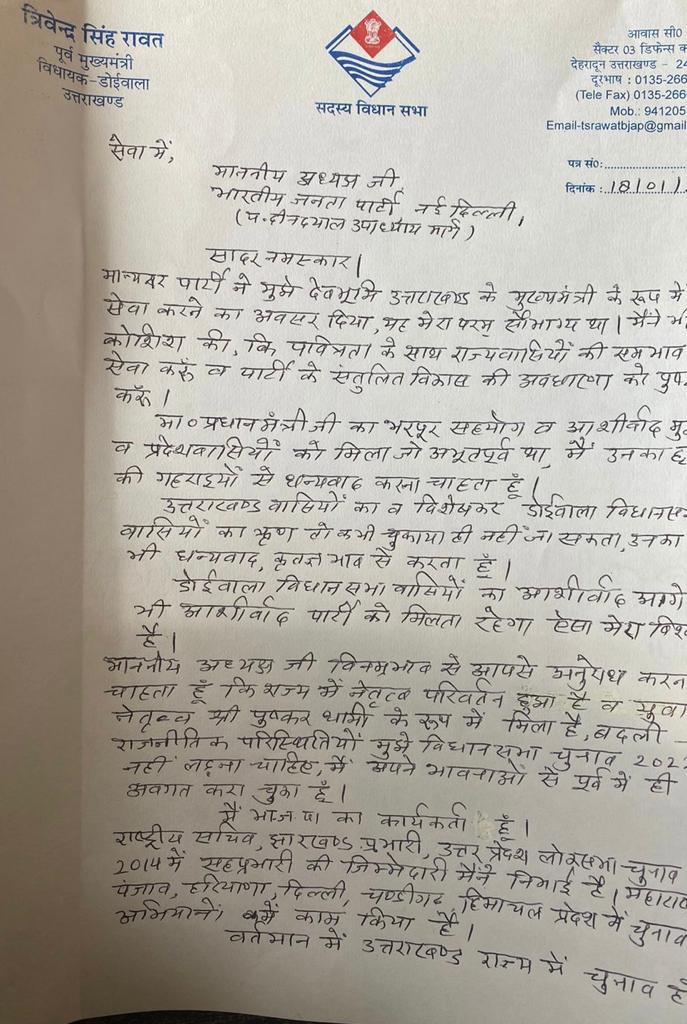 त्रिवेन्द्र सिंह रावत
पूर्व मुख्यमंत्री
विधायक-डोईवाला
उत्तराखण्ड
सदस्य विधान सभा
आवास सी0
सैक्टर 03 डिफेन्स
देहरादून उत्तराखण्ड - 24
दूरभाष : 0135-266
(Tele Fax) 0135-266
Mob.: 941205
Email-tsrawatbjap@gmail
पत्र सं0:
दिनांक : 18/01/
सेवा में,
माननीय अध्यक्ष जी
भारतीय जनता पार्टी नई दिल्ली,
(पं. दीनदयाल उपाध्याय मार्ग)
सादर नमस्कार।
मान्यवर पार्टी ने मुझे देवभूमि उत्तराखण्ड के मुख्यमंत्री के रूप में
सेवा करने का अवसर दिया, यह मेरा परम सौभाग्य था। मैंने
कोशिश की, कि पवित्रता के साथ राज्यवासियों की समभाव
सेवा करूँ व पार्टी के संतुलित विकास की अवधारणा को
करूँ।
मा० प्रधानमंत्री जी का भरपूर सहयोग व आशीर्वाद
व प्रदेशवासियों को मिला जो अभूतपूर्व था, मैं उनका
की गहराइयों से धन्यवाद करना चाहता हूँ।
उत्तराखण्ड वासियों का व विशेषकर डोईवाला
वासियों का ऋण तो कभी चुकाया ही नहीं जा सकता, उनका
भी धन्यवाद, कृतज्ञ भाव से करता हूँ।
डोईवाला विधानसभा वासियों का आशीर्वाद आगे
भी आशीर्वाद पार्टी को मिलता रहेगा ऐसा मेरा
है।
माननीय अध्यक्ष जी विनम्रभाव से आपसे अनुरोध करन
चाहता हूँ कि राज्य में नेतृत्व परिवर्तन हुआ है व युवा
नेतृत्व श्री पुष्कर धामी के रूप में मिला है, बदली
राजनीतिक परिस्थितियों मुझे विधानसभा चुनाव 202
नहीं लड़ना चाहिए, मैं अपने भावनाओं से पूर्व में ही
अवगत करा चुका हूँ।
मैं भाजपा का कार्यकर्ता हूँ।
राष्ट्रीय सचिव, झारखण्ड प्रभारी, उत्तर प्रदेश लोकसभा चुनाव
2014 में सहप्रभारी की जिम्मेदारी मैंने निभाई है।
पंजाब, हरियाणा, दिल्ली, चण्डीगढ़ हिमाचल प्रदेश में चुनाव
अभियानों में काम किया है।
वर्तमान में उत्तराखण्ड राज्य में चुनाव